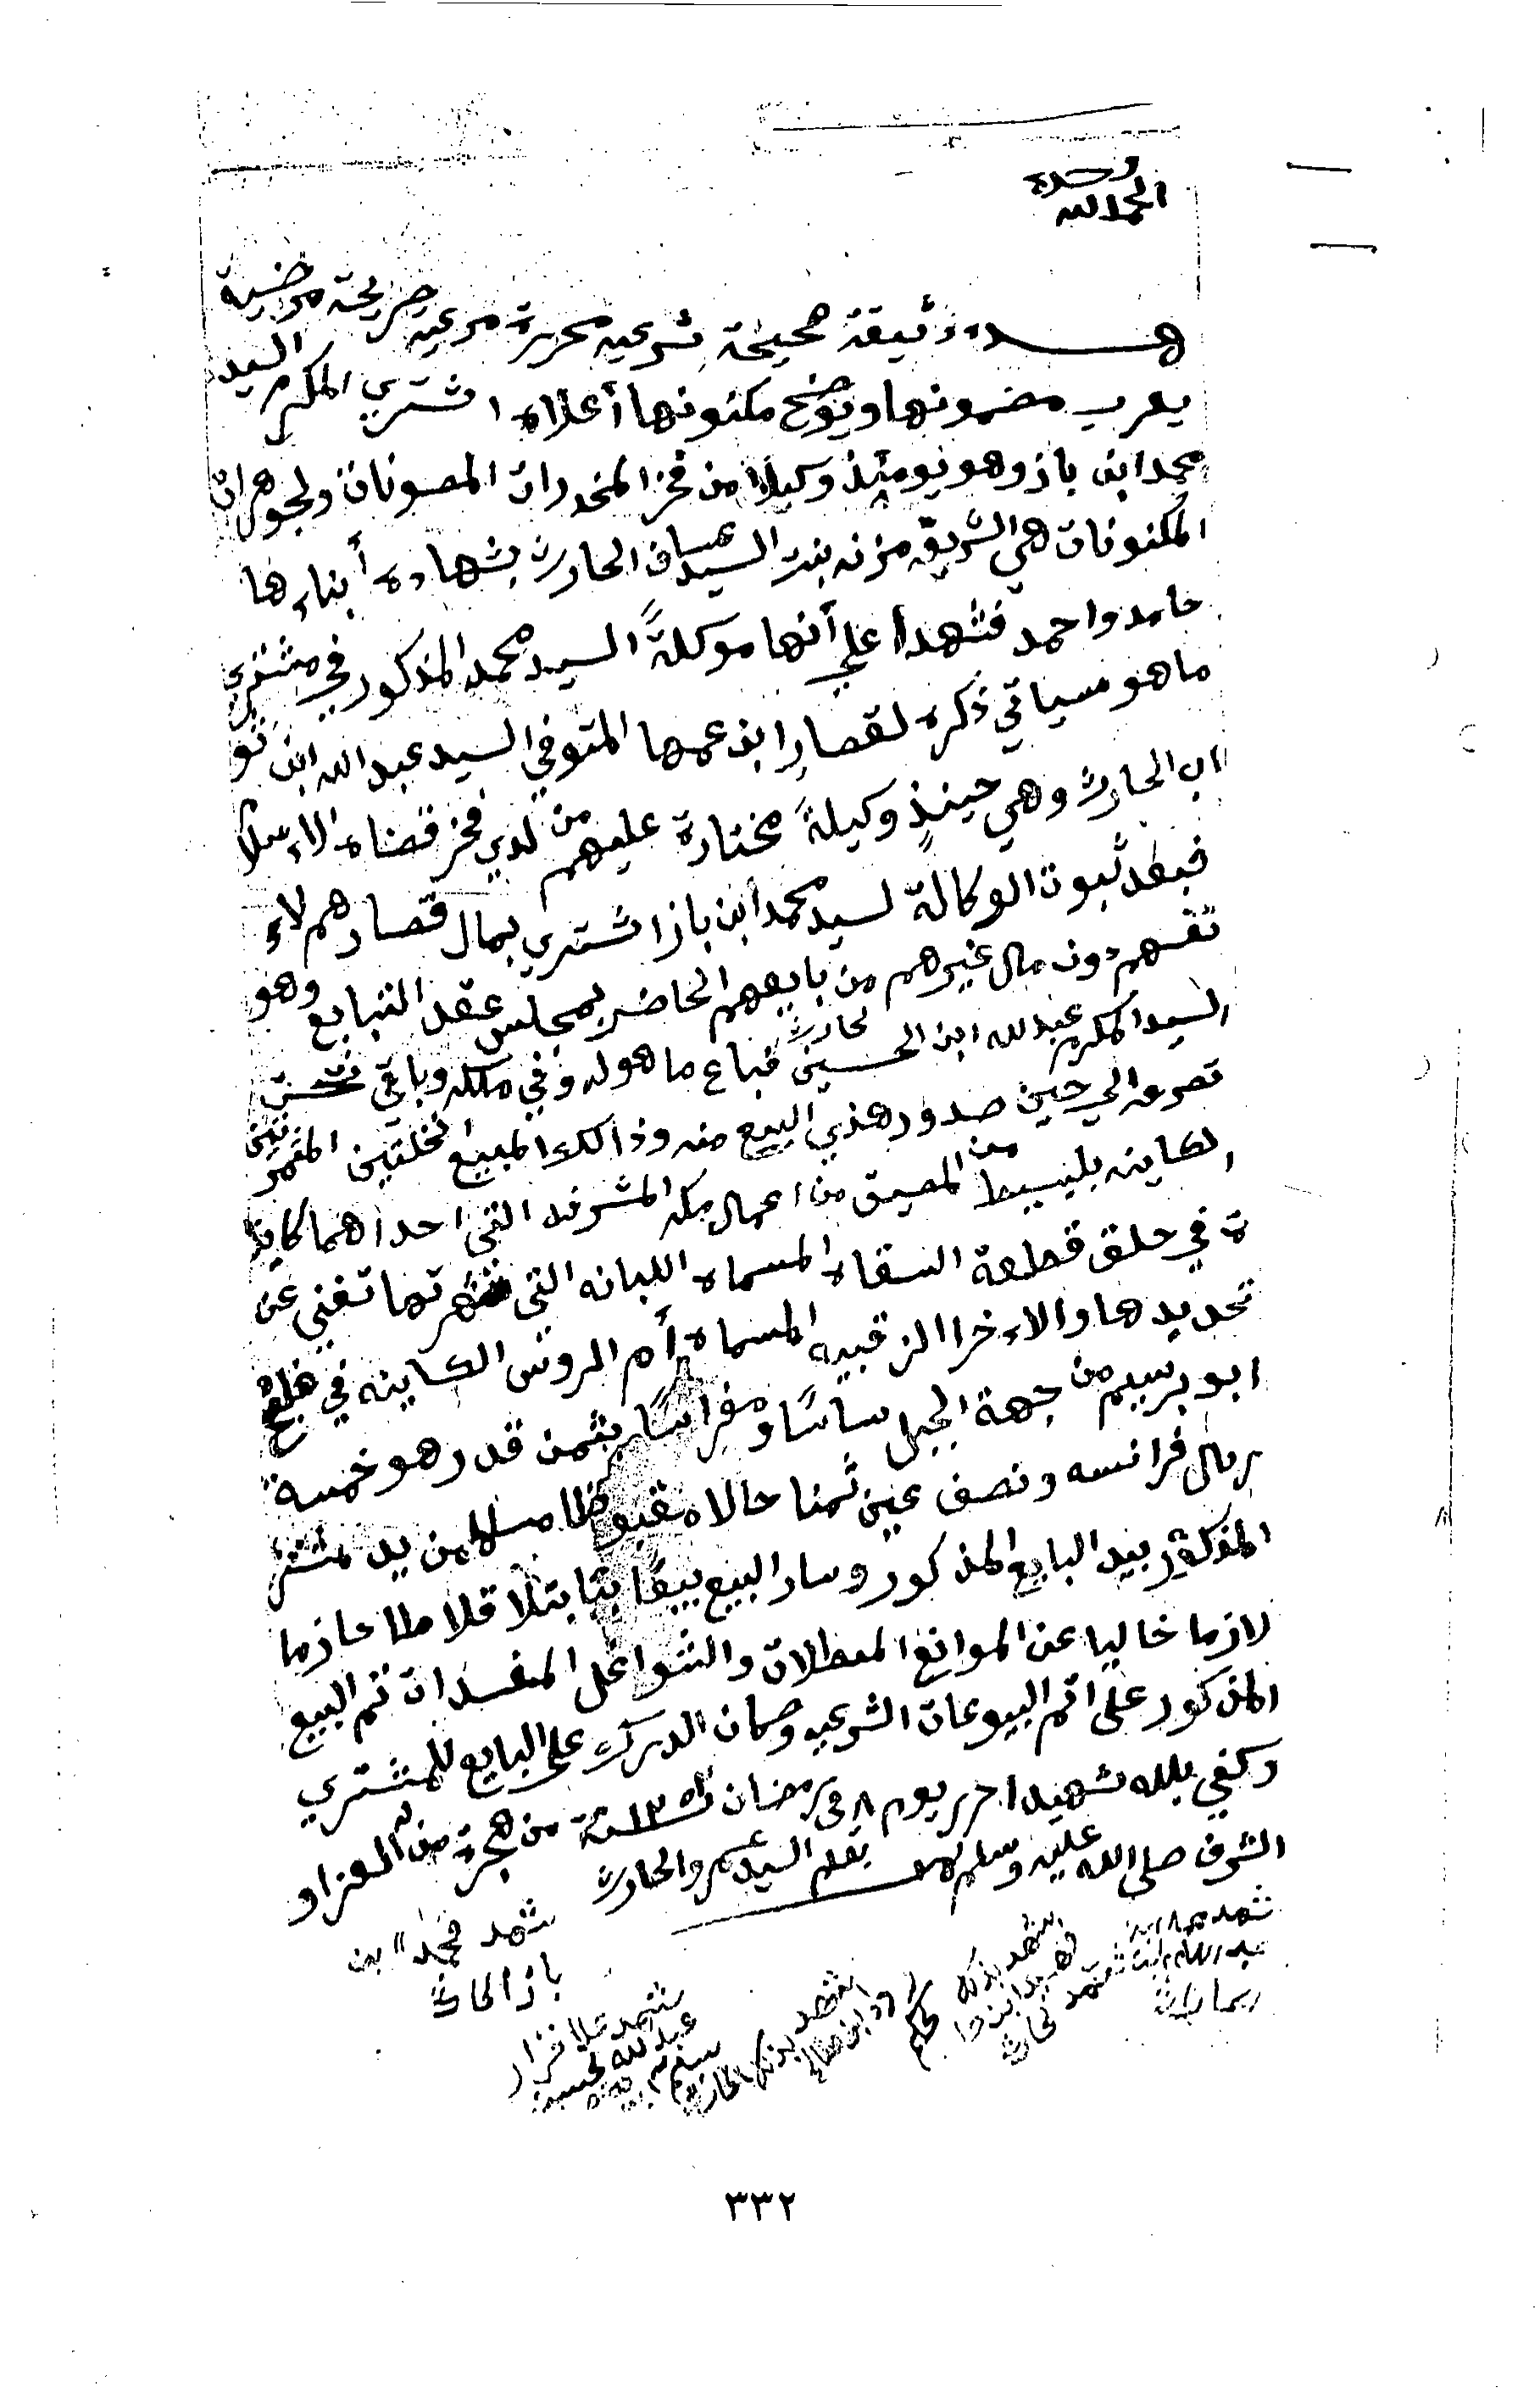 الحمد لله وحده
هذه وثيقة صحيحة شرعيه محررة مرعيه صريحة مرضية
يعرب مضمونها ويوضح مكنونها أعلاه اشتري المكرم السيد
محمد ابن باز وهو يوميئذ وكيلا من فخر المخدرات المصونات ولجوهرات
المكنونات هي الشريفه مزنه بنت السيد عساف الحارث بشهادة أبناءها
حامد واحمد فشهدا علي أنها موكلةً السيد محمد المذكور في مشتري
ما هو سياتي ذكره لقصار ابن عمها المتوفي السيد عبد الله ابن
الحارث وهي حينئذٍ وكيلةً مختارة عليهم من لدي فخر قضاه الاءسلا
فبعد ثبوت الوكالة لسيد محمد ابن باز اشتري بمال قصارهم لاء
نفسهم دون مال غيرهم من بايعهم الحاضر بمجلس عقد التبايع وهو
السيد المكرم عبد لله ابن الحسين لحارث فباع ما هو له وفي ملكه وباقي تحت
تصرفه الي حين صدور هذي البيع منه وذالك المبيع النخلتين المثمرتين
الكاينه بلبسيط من المضيق من اعمال مكه المشرفه التي احداهما كاين
ة في حلق قطعة السقاه المسماه اللبانه التي شهرتها تغني عن
تحديدها والاءخرا الزقبيه المسماة أم الروس الكاينه في
ابو برسيم من جهة الجبل ساسًا ومفراسًا بثمن قدرهو خمسة
ريال فرانسه ونصف عين ثمنا حالا مقبوظا مسلا من يد المشتر
المذكور بيد البايع المذكور وسار البيع بيعًا بتا بتلا قلاطا عازما
لازما خاليا عن الموانع المعطلات والشواغل المفسدات تم البيع
المذكور على اتم البيوعات الشرعيه وضمان الدرك على البايع للمشتري
وكفي بلله شهيدا حرر يوم ٨ في رمضان ١٣٥ سنة من هجرة من له العز او
الشرف صلى الله عليه وسلم بقلم السيد عمرو الحارث
شهد محمد ابن
باز الحارث
شهد علا قرار
عبد لله لحسين
اشهد بذلك
اشهد بذلك
٣٣٢